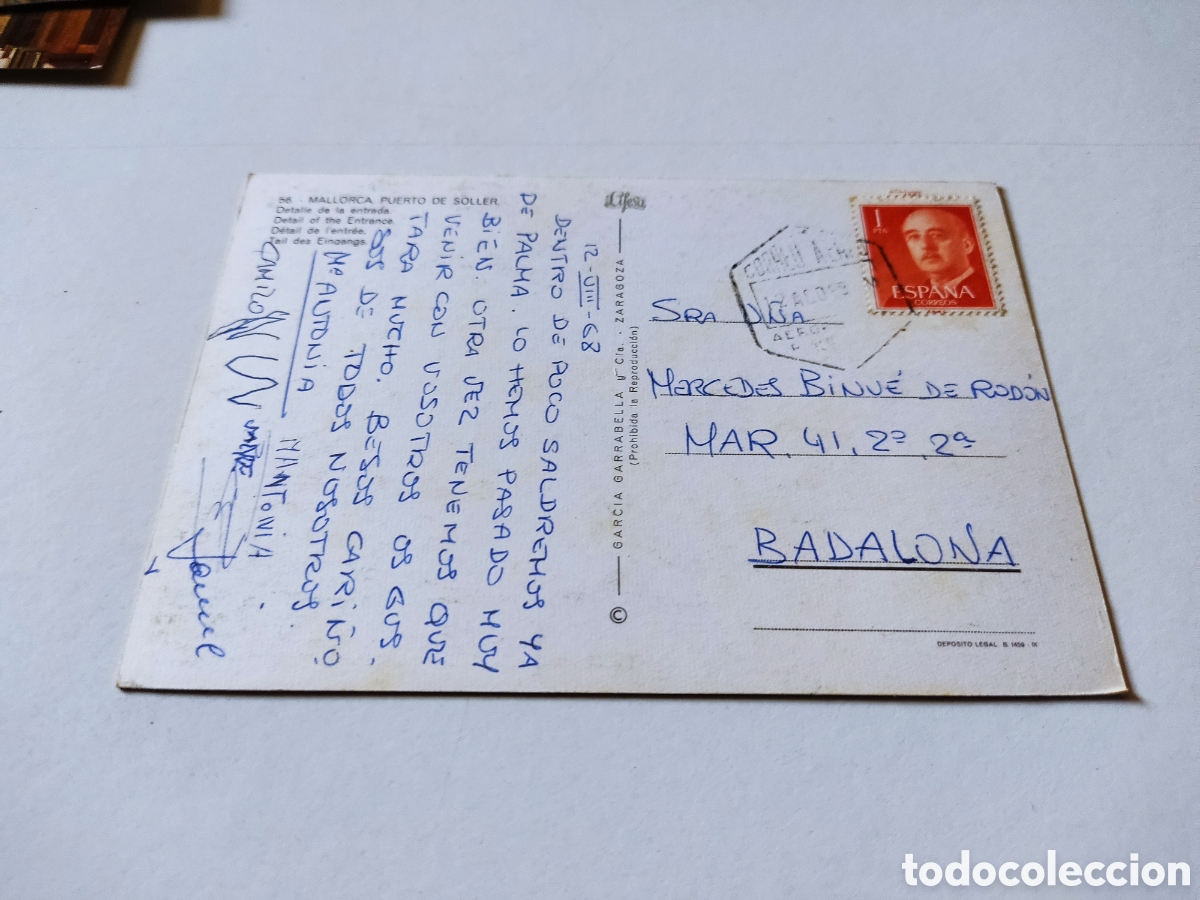 56 - MALLORCA. PUERTO DE SOLLER.
Detalle de la entrada.
Detail of the Entrance.
Détail de l'entrée.
Tail des Eingangs.
12-VIII-68
DENTRO DE POCO SALDREMOS YA
DE PALMA. LO HEMOS PASADO MUY
BIEN. OTRA VEZ TENEMOS QUE
VENIR CON VOSOTROS OS GUS-
TARA MUCHO. BESOS CARIÑO-
SOS DE TODOS NOSOTROS.
Mª ANTONIA
MANTONIA
CAMILO
Jaume
© GARCIA GARRABELLA y Cía. - ZARAGOZA
(Prohibida la Reproducción)
CORREO AEREO
12 AGO 68
1
PTA
ESPAÑA
CORREOS
SRA DÑA
MERCEDES BINUÉ DE RODÓN
MAR, 41, 2º, 2ª
BADALONA
DEPOSITO LEGAL B. 1459 - IX
todocoleccion